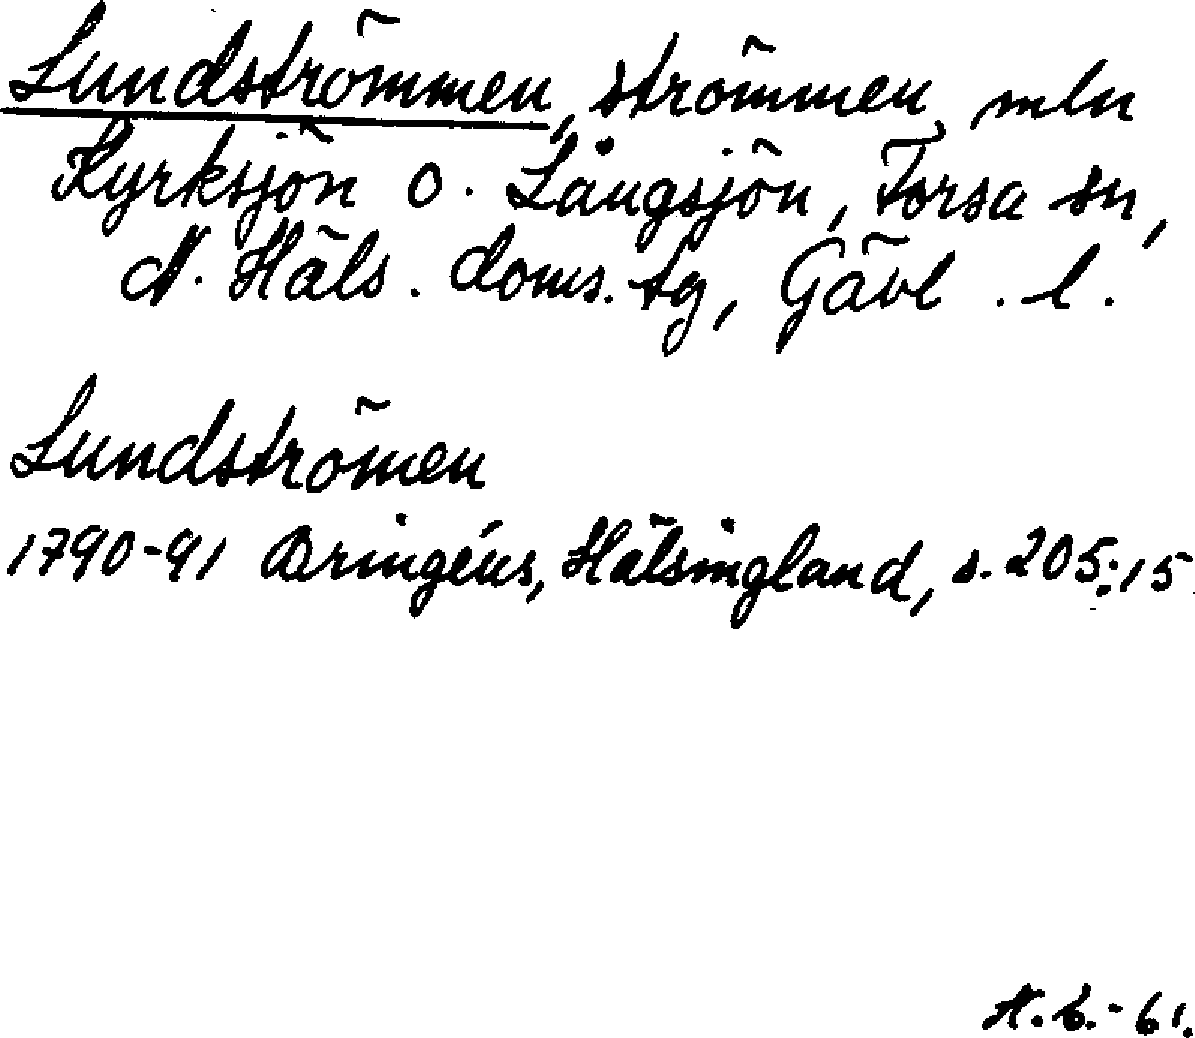 Lundströmmen, strömmen mln
Kyrksjön o. Långsjön, Forsa sn,
N. Häls. doms. tg, Gävl. l.
Lundströmen
1790-91 Bringéus, Hälsingland, s. 205:15
N.b.-61.